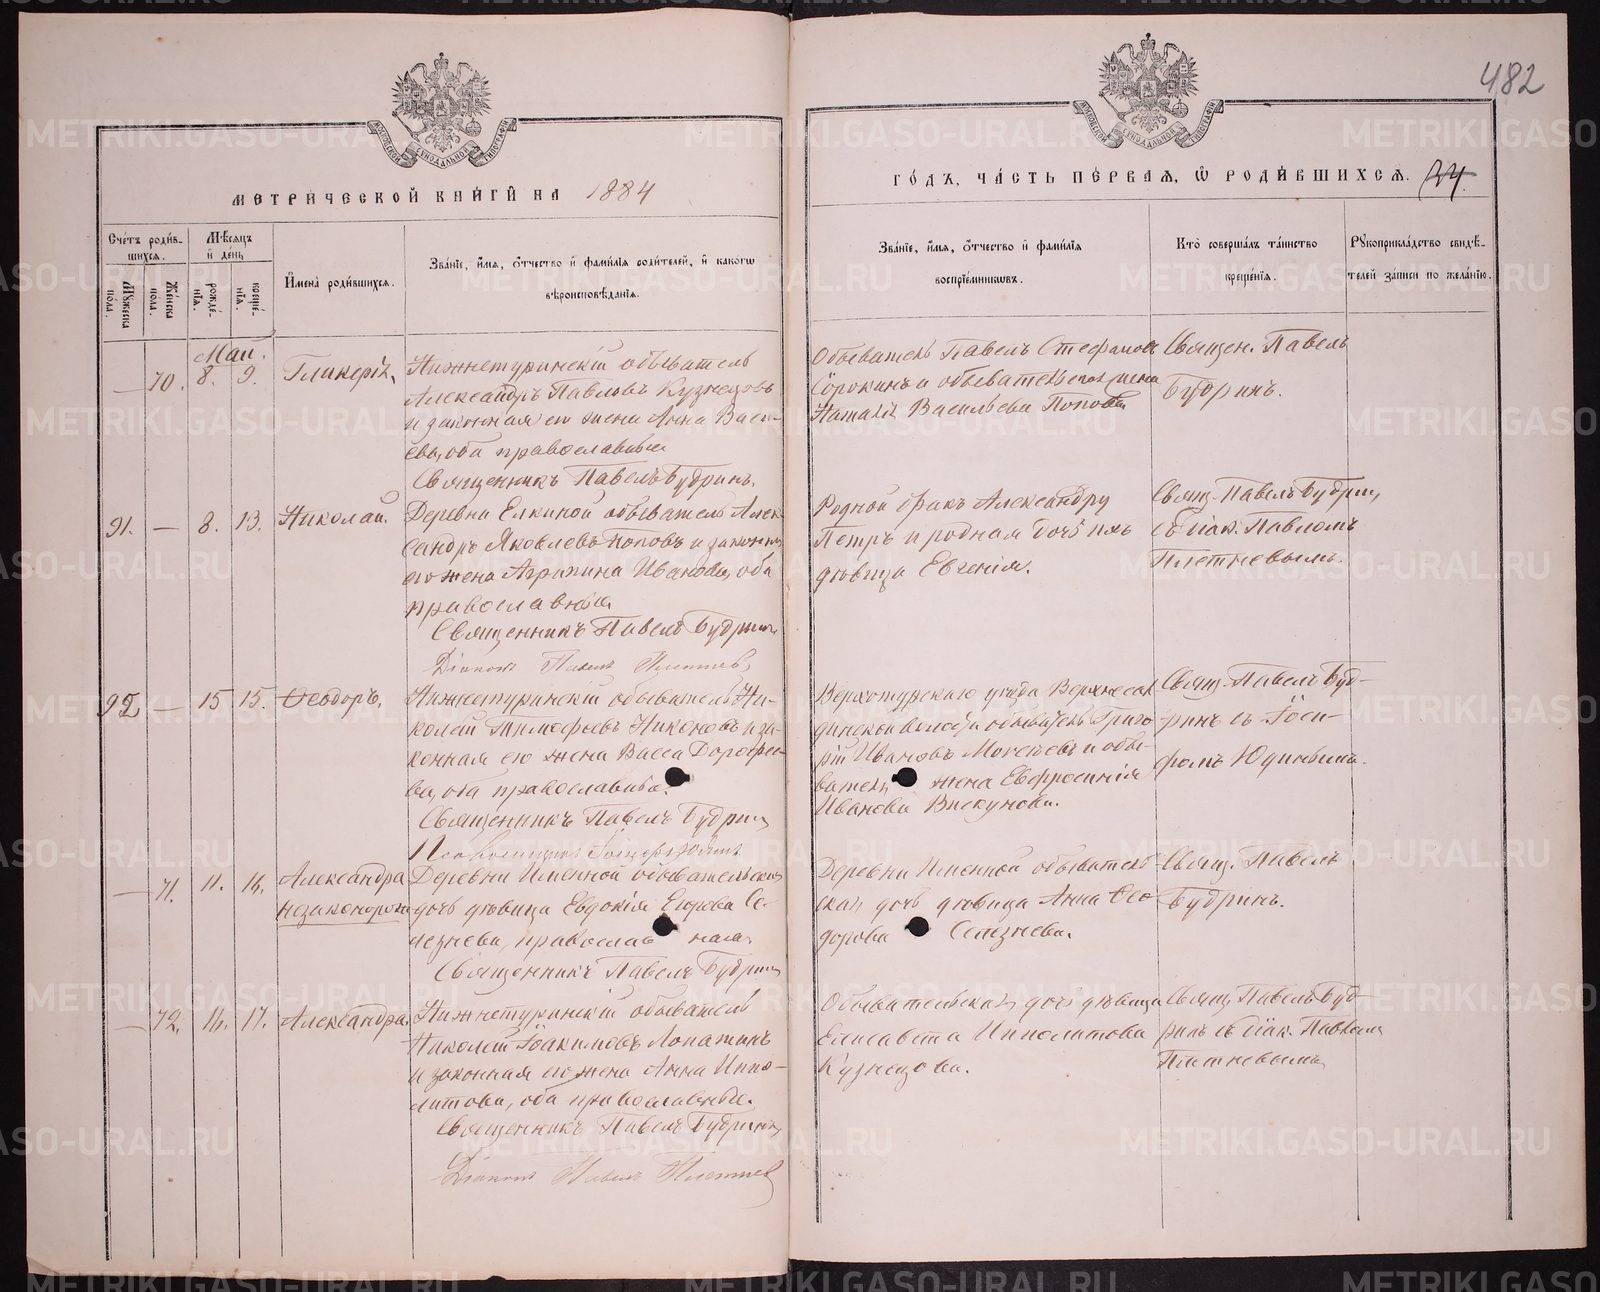 482
МЕТРИЧЕСКОЙ КНИГИ НА 1884
ГОДЪ, ЧАСТЬ ПЕРВАЯ, Ѡ РОДИВШИХСЯ. 34.
Счетъ родившихся.
Мужеска пола.
Женска пола.
Мѣсяцъ и день
рожденія.
крещенія.
Имена родившихся.
Званіе, имя, отчество и фамилія родителей, и какогѡ вѣроисповѣданія.
Званіе, имя, отчество и фамилія воспріемниковъ.
Кто совершалъ таинство крещенія.
Рукоприкладство свидѣтелей записи по желанію.
Май.
— 70. 8. 9. Гликерія,
Нижнетуринскій обыватель
Александръ Павловъ Кузнецовъ
и законная его жена Анна Василь-
ева, оба православные
Священникъ Павелъ Будринъ.
Обыватель Павелъ Стефановъ
Сорокинъ и обывательская жена
Наталія Васильева Попова
Священ. Павелъ
Будринъ.
91. — 8. 13. Николай.
Деревни Елкиной обыватель Алек-
сандръ Яковлевъ Поповъ и законная
его жена Агрипина Иванова, оба
православные
Священникъ Павелъ Будринъ
Діаконъ Павелъ Плетневъ
Родной братъ Александру
Петръ и родная дочь ихъ
дѣвица Евгенія.
Свящ. Павелъ Будринъ
съ діак. Павломъ
Плетневымъ.
92 — 15 15. Ѳеодоръ.
Нижнетуринскій обыватель Ни-
колай Тимофѣевъ Никоновъ и за-
конная его жена Васса Дорофее-
ва, оба православные.
Священникъ Павелъ Будринъ
Верхотурскаго уѣзда Верхнесал-
динской волости обыватель Григо
рій Ивановъ и обы-
ватель жена Евфросинія
Иванова
Свящ. Павелъ Буд-
ринъ съ Іоси-
фомъ Юдинымъ.
— 71. 11. 16. Александра
незаконорож
Деревни Именной обывательская
дочь дѣвица Евдокія Егорова Се-
лезнева, православ ная.
Священникъ Павелъ Будринъ
Деревни Именной обыватель-
ская дочь дѣвица Анна Ѳео
дорова Селезнева.
Свящ. Павелъ
Будринъ.
— 72. 16. 17. Александра.
Нижнетуринскій обыватель
Николай Іоакимовъ Лопатинъ
и законная его жена Анна Иппо-
литова, оба православные.
Священникъ Павелъ Будринъ,
Діаконъ Павелъ Плетневъ
Обывательская дочь дѣвица
Елисавета Ипполитова
Кузнецова.
Свящ. Павелъ Буд-
ринъ съ діак. Павломъ
Плетневымъ
METRIKI.GASO-URAL.RU